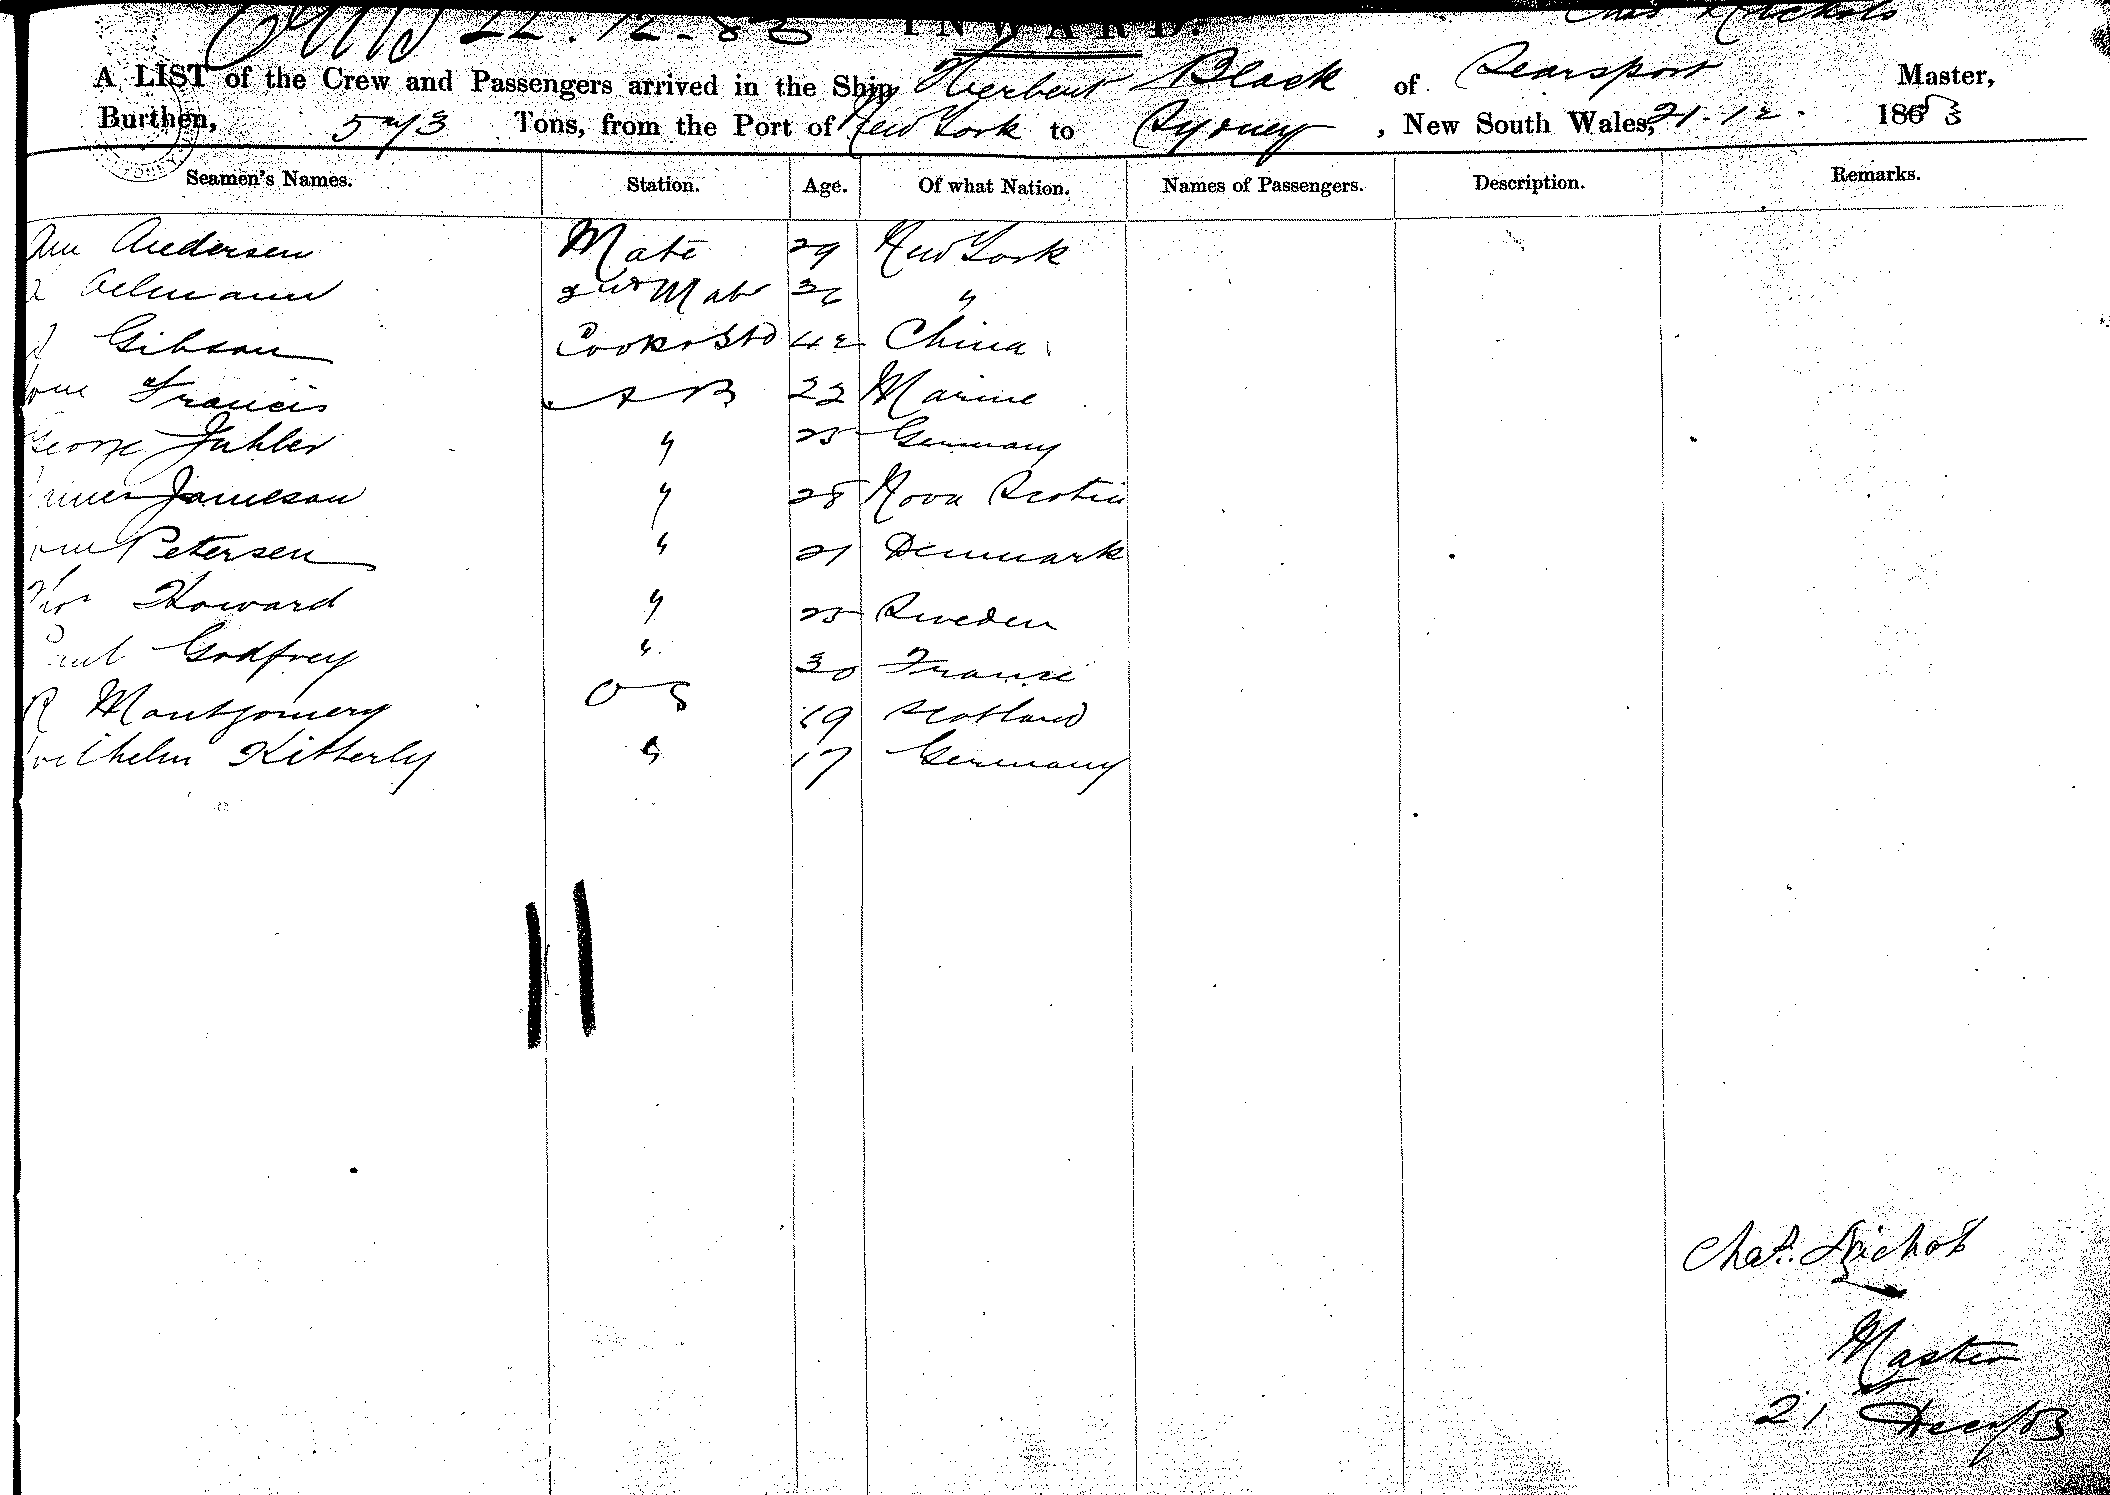 22.12.83 INWARD.
Chas Nichols
A LIST of the Crew and Passengers arrived in the Ship Herbert Black of Searsport Master,
Burthen, 573 Tons, from the Port of New York to Sydney, New South Wales, 21.12. 1883
Seamen's Names. Station. Age. Of what Nation. Names of Passengers. Description. Remarks.
Andersen Mate 29 New York
2nd Mate 36 "
Gibson Cook & Std 42 China
Francis A B 22 Marine
George Juhler " 25 Germany
Jameson " 28 Nova Scotia
Petersen " 21 Denmark
Thos Howard " 25 Sweden
Paul Godfrey " 30 France
R Montgomery O S 19 Scotland
Wilhelm Kitterly " 17 Germany
Chas. Nichols
Master
21 Decr/83